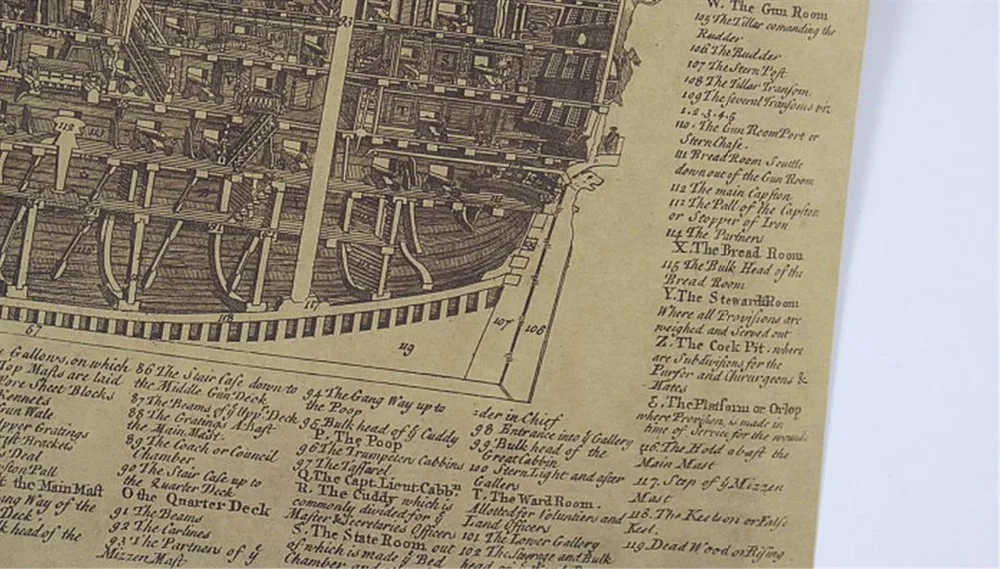 W. The Gun Room
105 The Tillar comanding the
Rudder
106 The Rudder
107 The Stern Post
108 The Tillar Transom
109 The several Transoms viz
1. 2. 3. 4. 5
110. The Gun Room Port or
Stern Chase.
111 Bread Room Scuttle
down out of the Gun Room
112 The main Capston
112 The Pall of the Capston
or Stopper of Iron
114 The Partners
X. The Bread Room
115 The Bulk Head of the
Bread Room
Y. The Steward Room
Where all Provisions are
weighed and Served out
Z. The Cock Pit. where
are Subdivisions for the
Purser and Chirurgeons &
Mates
&. The Platform or Orlop
where Provision, is made in
time of Service for the wounde
116. The Hold abaft the
Main Mast
117. Step of ye Mizzen
Mast
118. The Keelson or False
Keel.
119. Dead Wood or Rising
93
112
113
91
111
83
118
117
67
119
107
106
Gallows, on which
Top Masts are laid
Fore Sheet Blocks
Kennets
Gun Wale
Upper Gratings
rift Brackets
s Deal
ston Pall
t the Main Mast
ang Way of the
Deck
k head of the
86 The Stair Case down to
the Middle Gun Deck
87 The Beams of ye Uppr. Deck
88 The Gratings Abaft
the Main Mast
89 The Coach or Council
Chamber
90 The Stair Case up to
the Quarter Deck
O the Quarter Deck
91 The Beams
92 The Carlines
93 The Partners of ye
Mizzen Mast
94 The Gang Way up to
the Poop
95 Bulk head of ye Cuddy
P. The Poop
96 The Trumpeters Cabbins
97 The Taffarel
Q. The Capt. Lieut. Cabbn
R. The Cuddy which is
commonly divided for ye
Master & Secretaries Officers
S. The State Room out
of which is made ye Bed
Chamber and
=der in Chief
98 Entrance into ye Gallery
99 Bulk head of the
Great Cabbin
100 Stern Light and after
Gallery
T. The Ward Room.
Allotted for Voluntiers and
Land Officers
101 The Lower Gallery
102 The Steerage and Bulk
head of